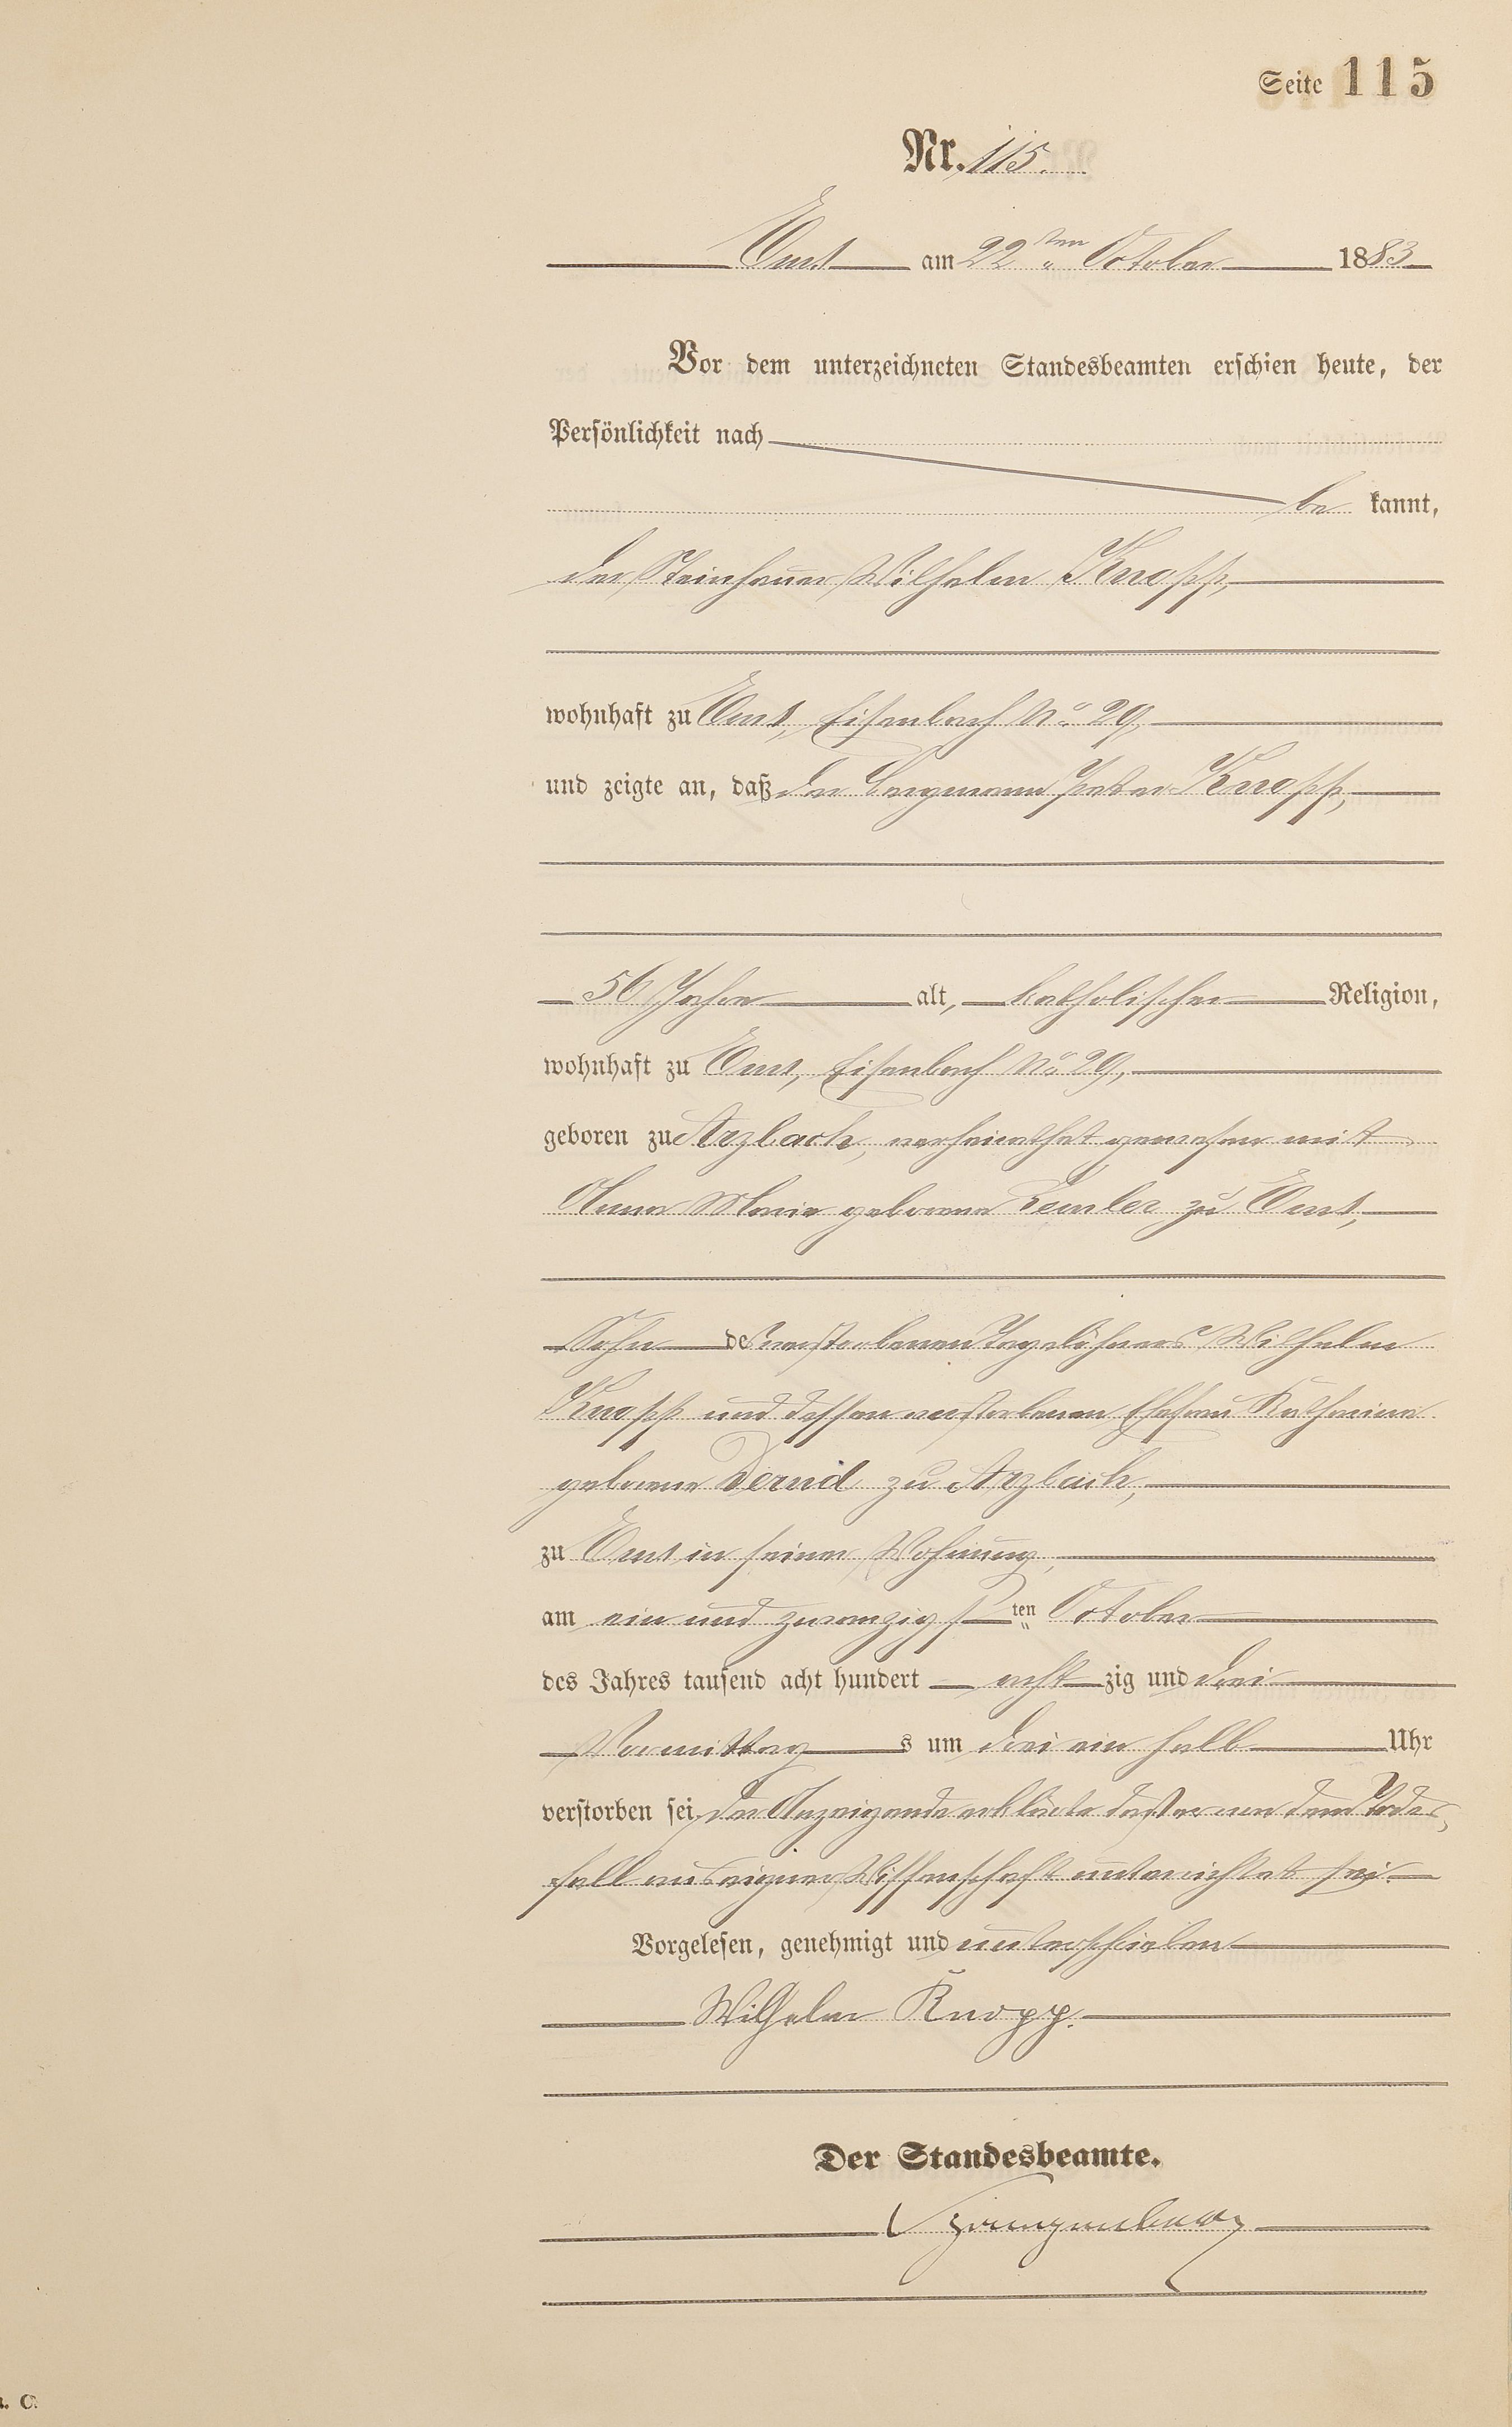 Seite 115
Nr. 115.
Ems am 22ten October 1883
Vor dem unterzeichneten Standesbeamten erschien heute, der
Persönlichkeit nach
be kannt,
der Steinhauer Wilhelm Knopp,
wohnhaft zu Ems, Eisenbach No. 29,
und zeigte an, daß der Bergmann Peter Knopp,
56 Jahre alt, katholischer Religion,
wohnhaft zu Ems, Eisenbach No 29,
geboren zu Arzbach, verheirathet gewesen mit
Anna Maria geborene zu Ems,
Sohn des verstorbenen Tagelöhners Wilhelm
Knopp und dessen verstorbenen Ehefrau Katharina
geborene zu Arzbach,
zu Ems in seiner Wohnung,
am ein und zwanzigsten October
des Jahres tausend acht hundert acht zig und drei
Vormittags um drei ein halb Uhr
verstorben sei, der Anzeigende erklärte daß er von dem Todes-
fall aus eigener Wissenschaft unterrichtet sei.
Vorgelesen, genehmigt und unterschrieben
Wilhelm Knopp.
Der Standesbeamte.